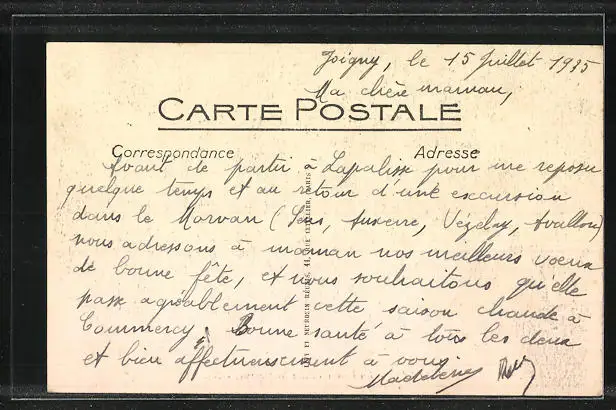 Joigny, le 15 Juillet 1935
Ma chère maman,
CARTE POSTALE
Correspondance
Adresse
Avant de partir à Lapalisse pour me reposer
quelque temps et au retour d'une excursion
dans le Morvan (Sens, Auxerre, Vézelay, Avallon)
nous adressons à maman nos meilleurs voeux
de bonne fête, et nous souhaitons qu'elle
passe agréablement cette saison chaude à
Commercy. Bonne santé à tous les deux
et bien affectueusement à vous
Madeleine
LÉVY ET NEURDEIN RÉUNIS, 44, RUE LETELLIER, PARIS